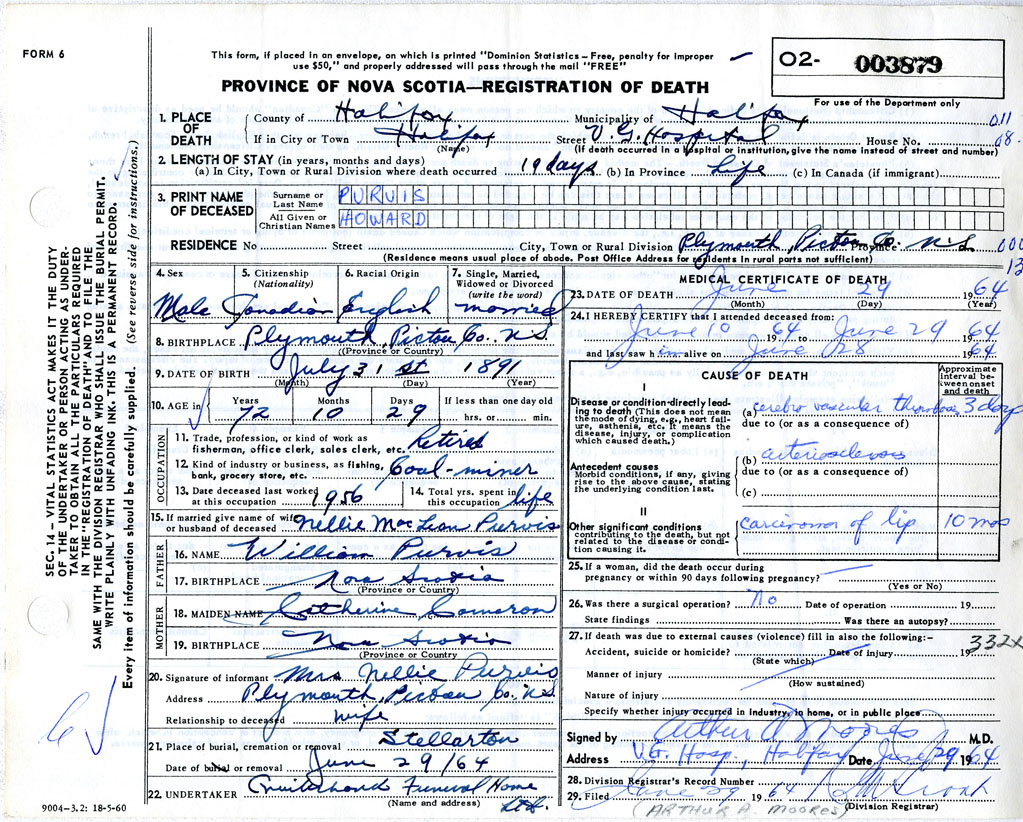 FORM 6
This form, if placed in an envelope, on which is printed "Dominion Statistics – Free, penalty for improper
use $50," and properly addressed will pass through the mail "FREE"
O2- 003879
For use of the Department only
PROVINCE OF NOVA SCOTIA—REGISTRATION OF DEATH
1. PLACE OF DEATH
County of Halifax Municipality of Halifax 011
If in City or Town Halifax Street V.G. Hospital House No. 08
(Name) (If death occurred in a hospital or institution, give the name instead of street and number)
2. LENGTH OF STAY (in years, months and days)
(a) In City, Town or Rural Division where death occurred 19 days (b) In Province Life (c) In Canada (if immigrant)
3. PRINT NAME OF DECEASED
Surname or Last Name PURVIS
All Given or Christian Names HOWARD
RESIDENCE No Street City, Town or Rural Division Plymouth, Pictou Co. Province N.S. 000
(Residence means usual place of abode. Post Office Address for residents in rural parts not sufficient) 13
4. Sex Male
5. Citizenship (Nationality) Canadian
6. Racial Origin English
7. Single, Married, Widowed or Divorced (write the word) married
8. BIRTHPLACE Plymouth, Pictou Co. N.S.
(Province or Country)
9. DATE OF BIRTH July 31 st 1891
(Month) (Day) (Year)
10. AGE in Years 72 Months 10 Days 29 If less than one day old hrs. or min.
OCCUPATION
11. Trade, profession, or kind of work as fisherman, office clerk, sales clerk, etc. Retired
12. Kind of industry or business, as fishing, bank, grocery store, etc. Coal-miner
13. Date deceased last worked at this occupation 1956
14. Total yrs. spent in this occupation life
15. If married give name of wife or husband of deceased Nellie MacLean Purvis
FATHER
16. NAME William Purvis
17. BIRTHPLACE Nova Scotia
(Province or Country)
MOTHER
18. MAIDEN NAME Catherine Cameron
19. BIRTHPLACE Nova Scotia
(Province or Country
20. Signature of informant Mrs Nellie Purvis
Address Plymouth, Pictou Co. N.S.
Relationship to deceased wife
21. Place of burial, cremation or removal Stellarton
Date of burial or removal June 29/64
22. UNDERTAKER Funeral Home Ltd.
(Name and address)
MEDICAL CERTIFICATE OF DEATH
23. DATE OF DEATH June 29 1964
(Month) (Day) (Year)
24. I HEREBY CERTIFY that I attended deceased from:
June 10 1964 to June 29 1964
and last saw him alive on June 28 1964
CAUSE OF DEATH
Approximate interval between onset and death
I
Disease or condition directly leading to death (This does not mean the mode of dying, e.g., heart failure, asthenia, etc. It means the disease, injury, or complication which caused death.)
(a) cerebro vascular thrombosis 3 days
due to (or as a consequence of)
Antecedent causes
Morbid conditions, if any, giving rise to the above cause, stating the underlying condition last.
(b) arteriosclerosis
due to (or as a consequence of)
(c)
II
Other significant conditions contributing to the death, but not related to the disease or condition causing it.
carcinoma of lip 10 mos
25. If a woman, did the death occur during pregnancy or within 90 days following pregnancy?
(Yes or No)
26. Was there a surgical operation? No Date of operation 19
State findings Was there an autopsy?
27. If death was due to external causes (violence) fill in also the following:–
Accident, suicide or homicide? Date of injury 19 332X
(State which)
Manner of injury
(How sustained)
Nature of injury
Specify whether injury occurred in Industry, in home, or in public place
Signed by Arthur A Moores M.D.
Address V.G. Hosp., Halifax Date June 29 1964
28. Division Registrar's Record Number
29. Filed June 29 1964
(ARTHUR A. MOORES) (Division Registrar)
9004–3.2: 18-5-60
SEC. 14 – VITAL STATISTICS ACT MAKES IT THE DUTY
OF THE UNDERTAKER OR PERSON ACTING AS UNDER-
TAKER TO OBTAIN ALL THE PARTICULARS REQUIRED
IN THE "REGISTRATION OF DEATH" AND TO FILE THE
SAME WITH THE DIVISION REGISTRAR WHO SHALL ISSUE THE BURIAL PERMIT.
WRITE PLAINLY WITH UNFADING INK. THIS IS A PERMANENT RECORD.
Every item of information should be carefully supplied. (See reverse side for instructions.)